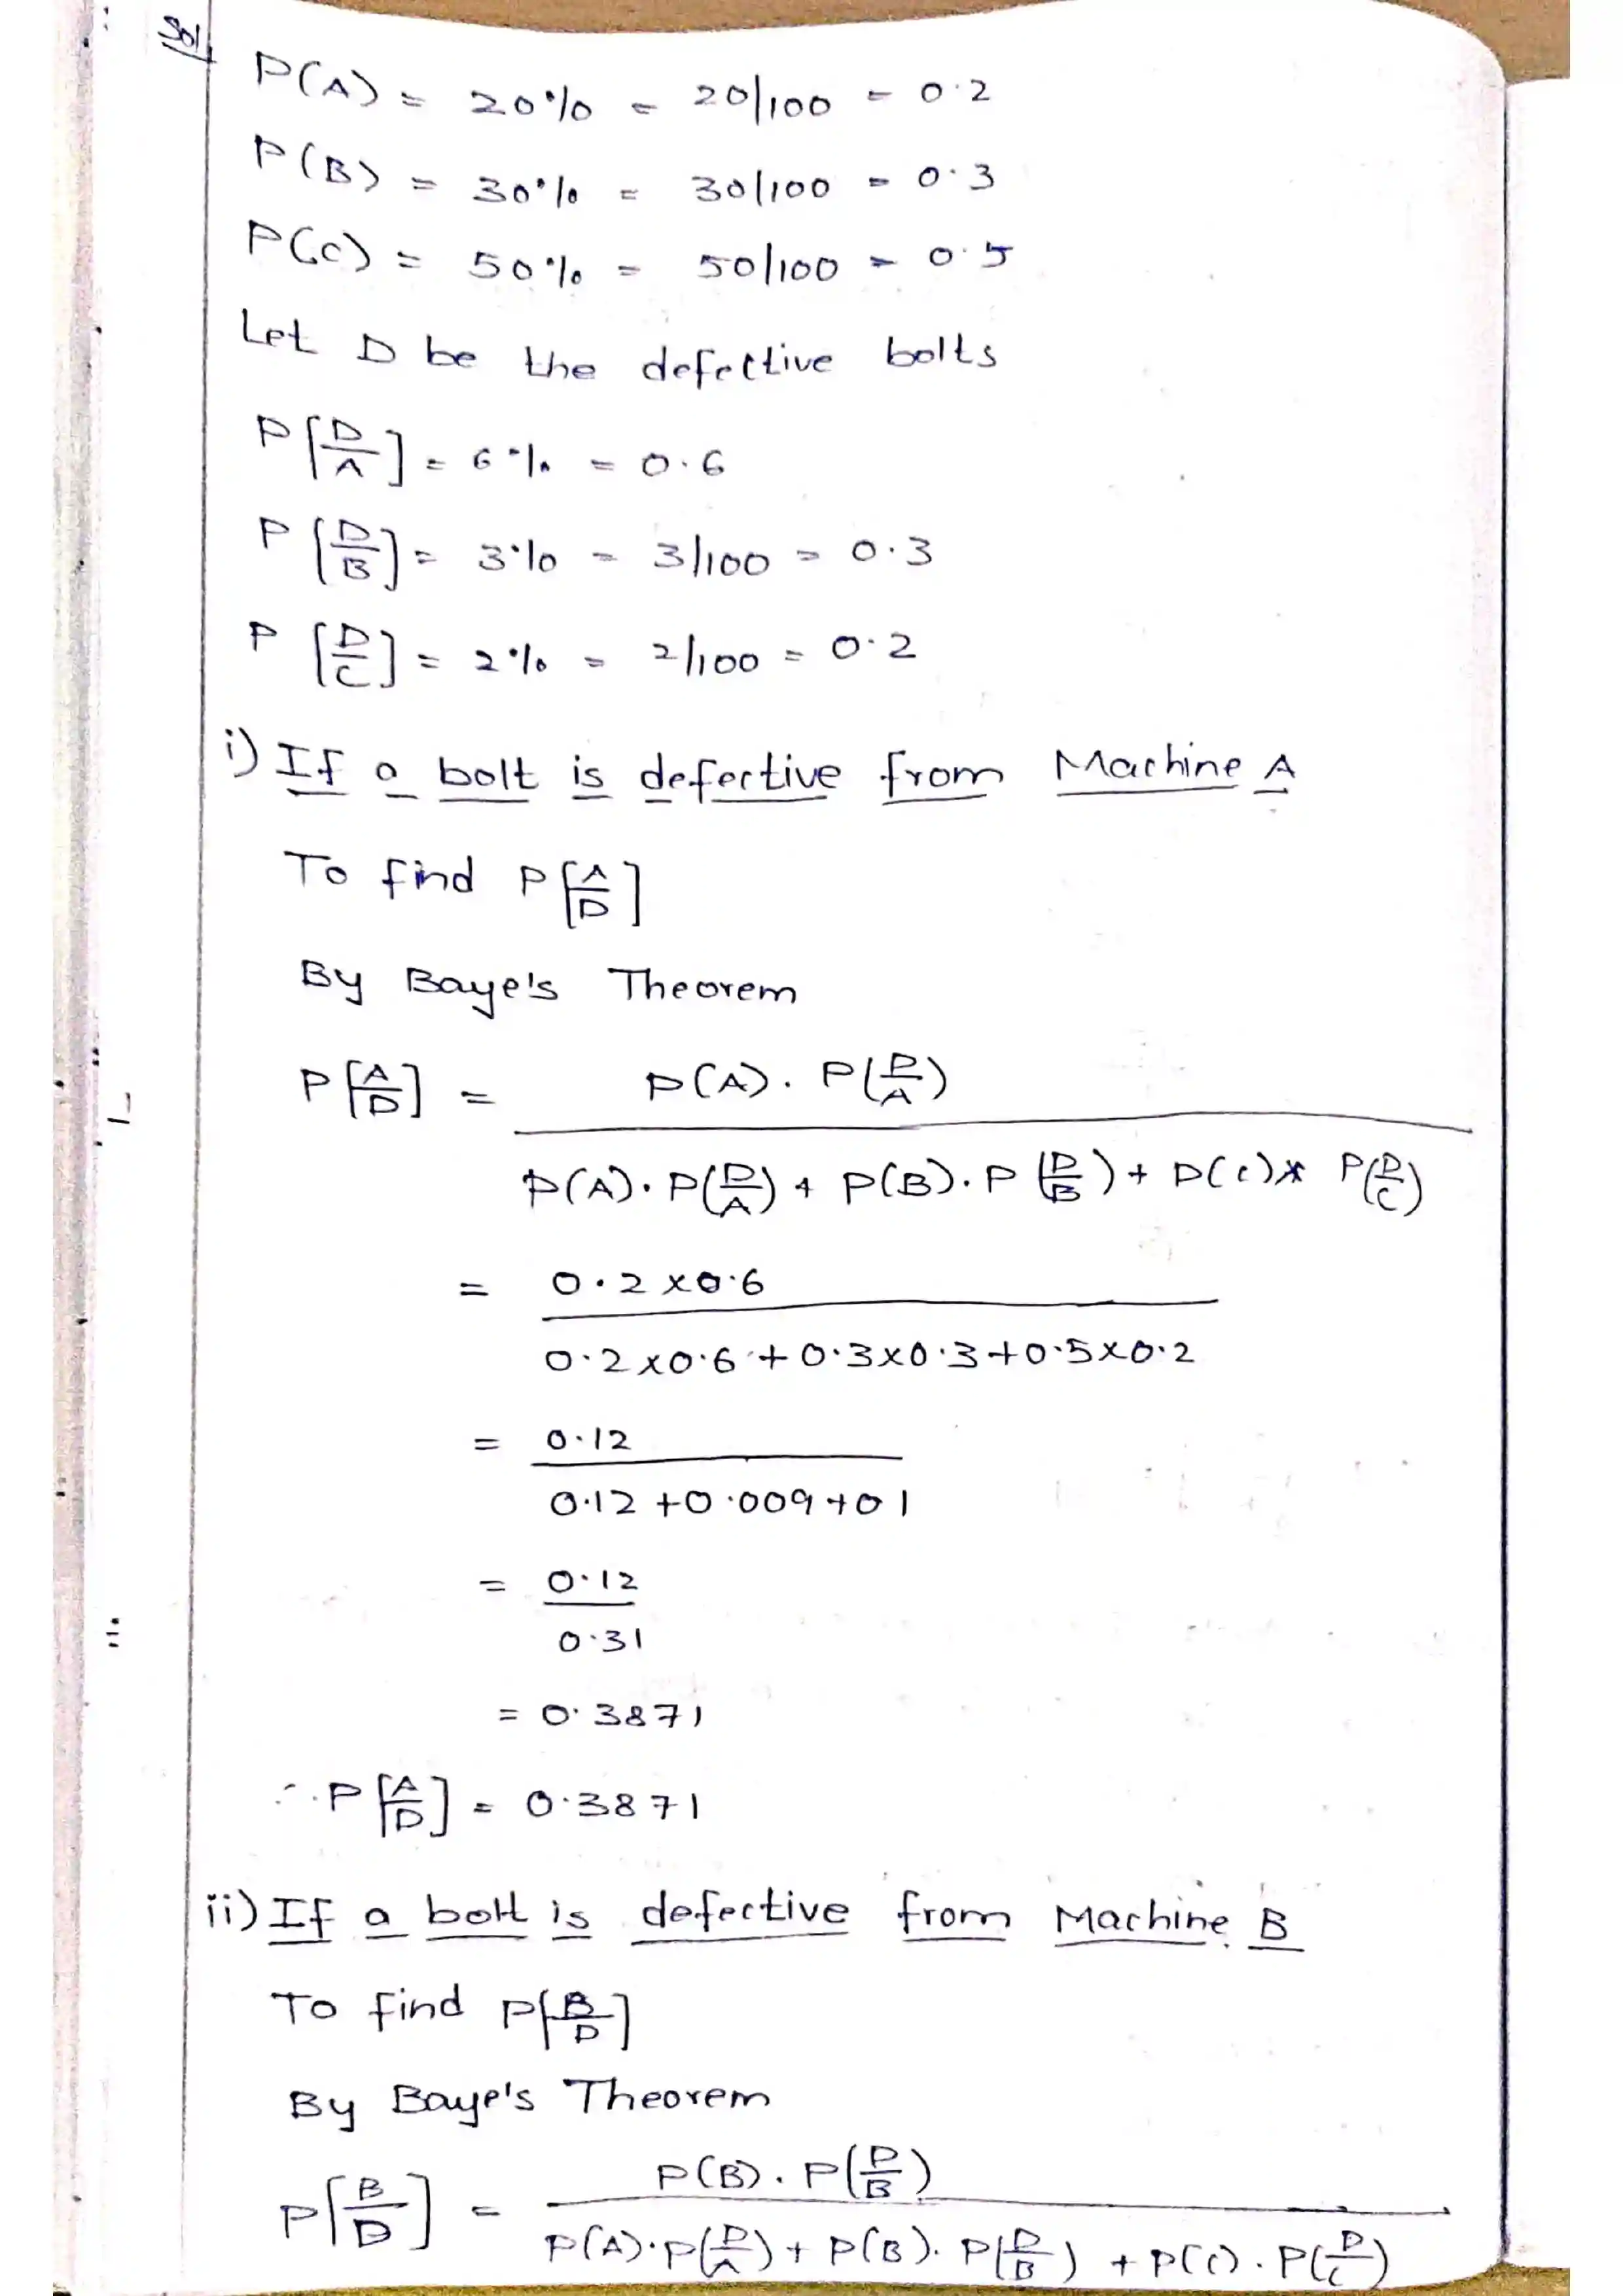 Sol
P(A) = 20% = 20/100 = 0.2
P(B) = 30% = 30/100 = 0.3
P(C) = 50% = 50/100 = 0.5
Let D be the defective bolts
P[D/A] = 6% = 0.6
P[D/B] = 3% = 3/100 = 0.3
P[D/C] = 2% = 2/100 = 0.2
i) If a bolt is defective from Machine A
To find P[A/D]
By Baye's Theorem
P[A/D] = P(A). P(D/A)
P(A). P(D/A) + P(B). P(D/B) + P(C)* P(D/C)
= 0.2 x 0.6
0.2 x 0.6 + 0.3 x 0.3 + 0.5 x 0.2
= 0.12
0.12 + 0.009 + 0 1
= 0.12
0.31
= 0.3871
∴ P[A/D] = 0.3871
ii) If a bolt is defective from Machine B
To find P[B/D]
By Baye's Theorem
P[B/D] = P(B). P(D/B)
P(A). P(D/A) + P(B). P(D/B) + P(C). P(D/C)